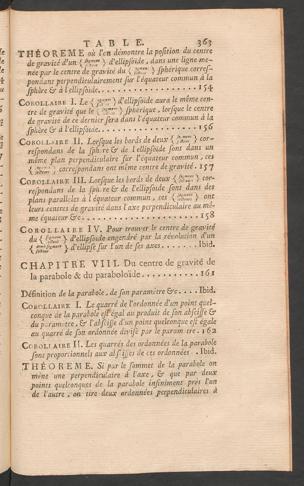 TABLE. 363
THÉOREME où l'on démontre la position du centre
de gravité d'un { segment } d'ellipsoïde, dans une ligne me-
née par le centre de gravité du { segment } sphérique corres-
pondant perpendiculairement sur l'équateur commun à la
sphère & à l'ellipsoïde. 154
COROLLAIRE I. Le { segment } d'ellipsoïde aura le même cen-
tre de gravité que le { segment } sphérique, lorsque le centre
de gravité de ce dernier sera dans l'équateur commun à la
sphère & à l'ellipsoïde. 156
COROLLAIRE II. Lorsque les bords de deux { segmens } cor-
respondans de la sphère & de l'ellipsoïde sont dans un
même plan perpendiculaire sur l'équateur commun, ces
{ segmens } correspondans ont même centre de gravité. 157
COROLLAIRE III. Lorsque les bords de deux { segmens } cor-
respondans de la sphère & de l'ellipsoïde sont dans des
plans paralleles à l'équateur commun, ces { segmens } ont
leurs centres de gravité dans l'axe perpendiculaire au mê-
me équateur &c. 158
COROLLAIRE IV. Pour trouver le centre de gravité
du { segment } d'ellipsoïde engendré par la révolution d'un
d'ellipse sur l'un de ses axes. Ibid.
CHAPITRE VIII. Du centre de gravité de
la parabole & du paraboloïde. 161
Définition de la parabole, de son parametre &c. Ibid.
COROLLAIRE I. Le quarré de l'ordonnée d'un point quel-
conque de la parabole est égal au produit de son abscisse &
du parametre, & l'abscisse d'un point quelconque est égale
au quarré de son ordonnée divisé par le parametre. 162
COROLLAIRE II. Les quarrés des ordonnées de la parabole
sont proportionnels aux abscisses de ces ordonnées. Ibid.
THÉOREME. Si par le sommet de la parabole on
mene une perpendiculaire à l'axe, & que par deux
points quelconques de la parabole infiniment près l'un
de l'autre, on tire deux ordonnées perpendiculaires à